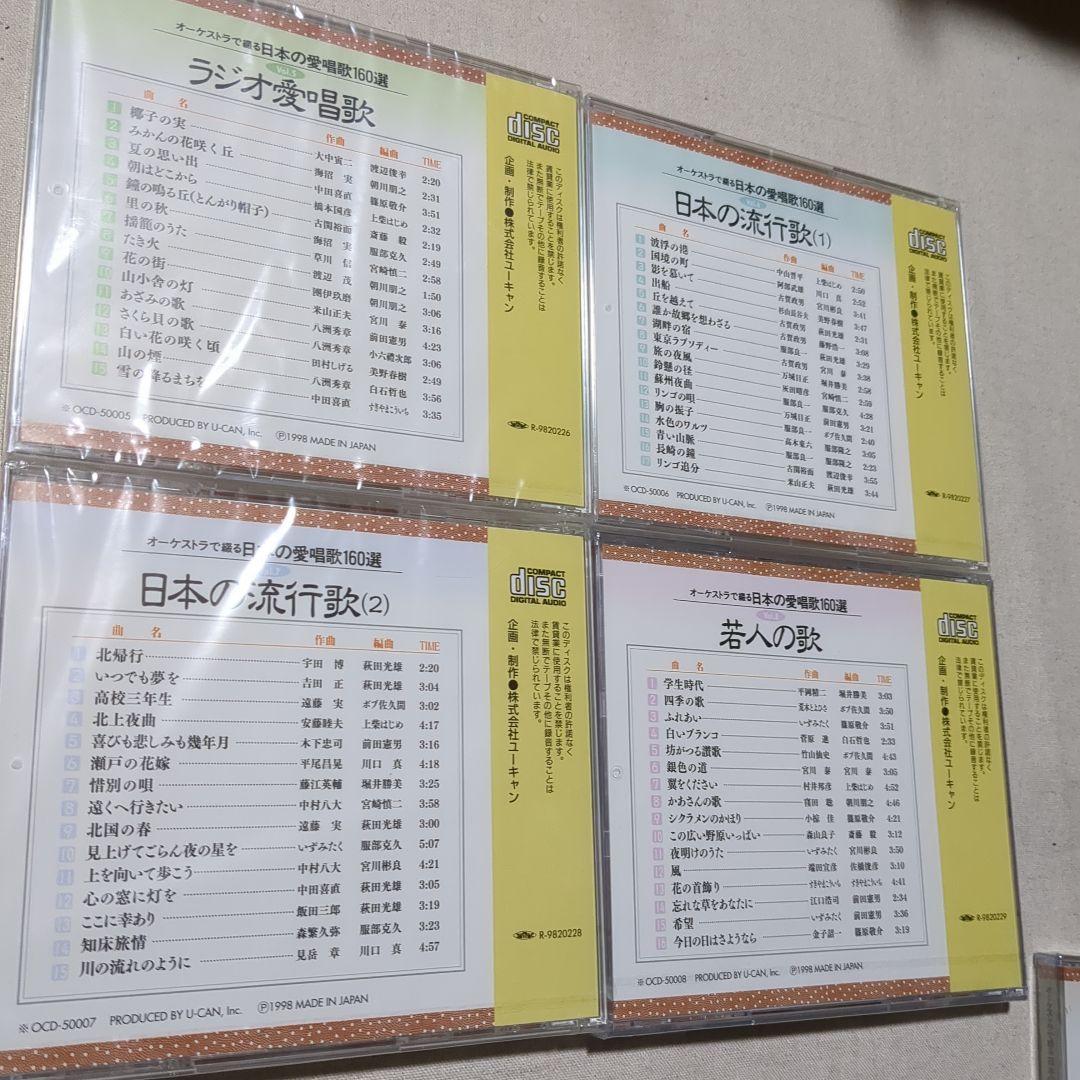 オーケストラで綴る日本の愛唱歌160選
Vol.5
ラジオ愛唱歌
曲 名 作曲 編曲 TIME
1 椰子の実 大中寅二 渡辺俊幸 2:20
2 みかんの花咲く丘 海沼 実 朝川朋之 2:31
3 夏の思い出 中田喜直 篠原敬介 3:51
4 朝はどこから 橋本国彦 上柴はじめ 2:32
5 鐘の鳴る丘(とんがり帽子) 古関裕而 斎藤 毅 2:19
6 里の秋 海沼 実 服部克久 2:49
7 揺籠のうた 草川 信 宮崎慎二 2:58
8 たき火 渡辺 茂 朝川朋之 1:50
9 花の街 團伊玖磨 朝川朋之 3:06
10 山小舎の灯 米山正夫 宮川 泰 3:16
11 あざみの歌 八洲秀章 前田憲男 4:23
12 さくら貝の歌 八洲秀章 小六禮次郎 3:06
13 白い花の咲く頃 田村しげる 美野春樹 2:49
14 山の煙 八洲秀章 白石哲也 3:56
15 雪の降るまちを 中田喜直 すぎやまこういち 3:35
※OCD-50005 PRODUCED BY U-CAN, Inc. Ⓟ1998 MADE IN JAPAN
COMPACT
disc
DIGITAL AUDIO
このディスクは権利者の許諾なく
賃貸業に使用することを禁じます。
また無断でテープその他に録音することは
法律で禁じられています。
企画・制作●株式会社ユーキャン
R-9820226
オーケストラで綴る日本の愛唱歌160選
Vol.6
日本の流行歌(1)
曲 名 作曲 編曲 TIME
1 波浮の港 中山晋平 上柴はじめ 2:50
2 国境の町 阿部武雄 川口 真 2:52
3 影を慕いて 古賀政男 宮川彬良 3:41
4 出船 杉山長谷夫 美野春樹 3:47
5 丘を越えて 古賀政男 萩田光雄 2:31
6 誰か故郷を想わざる 古賀政男 藤野浩一 3:08
7 湖畔の宿 服部良一 萩田光雄 3:29
8 東京ラプソディー 古賀政男 宮川 泰 3:38
9 旅の夜風 万城目正 堀井勝美 2:58
10 鈴懸の径 灰田晴彦 宮崎慎二 2:59
11 蘇州夜曲 服部良一 服部克久 4:28
12 リンゴの唄 万城目正 前田憲男 3:21
13 胸の振子 服部良一 ボブ佐久間 2:40
14 水色のワルツ 高木東六 服部隆之 3:05
15 青い山脈 服部良一 服部隆之 2:23
16 長崎の鐘 古関裕而 渡辺俊幸 3:55
17 リンゴ追分 米山正夫 萩田光雄 3:44
※OCD-50006 PRODUCED BY U-CAN, Inc. Ⓟ1998 MADE IN JAPAN
COMPACT
disc
DIGITAL AUDIO
このディスクは権利者の許諾なく
賃貸業に使用することを禁じます。
また無断でテープその他に録音することは
法律で禁じられています。
企画・制作●株式会社ユーキャン
R-9820227
オーケストラで綴る日本の愛唱歌160選
Vol.7
日本の流行歌(2)
曲 名 作曲 編曲 TIME
1 北帰行 宇田 博 萩田光雄 2:20
2 いつでも夢を 吉田 正 萩田光雄 3:04
3 高校三年生 遠藤 実 ボブ佐久間 3:02
4 北上夜曲 安藤睦夫 上柴はじめ 4:17
5 喜びも悲しみも幾年月 木下忠司 前田憲男 3:16
6 瀬戸の花嫁 平尾昌晃 川口 真 4:18
7 惜別の唄 藤江英輔 堀井勝美 3:25
8 遠くへ行きたい 中村八大 宮崎慎二 3:58
9 北国の春 遠藤 実 萩田光雄 3:00
10 見上げてごらん夜の星を いずみたく 服部克久 5:07
11 上を向いて歩こう 中村八大 宮川彬良 4:21
12 心の窓に灯を 中田喜直 萩田光雄 3:05
13 ここに幸あり 飯田三郎 萩田光雄 3:19
14 知床旅情 森繁久弥 服部克久 3:23
15 川の流れのように 見岳 章 川口 真 4:57
※OCD-50007 PRODUCED BY U-CAN, Inc. Ⓟ1998 MADE IN JAPAN
COMPACT
disc
DIGITAL AUDIO
このディスクは権利者の許諾なく
賃貸業に使用することを禁じます。
また無断でテープその他に録音することは
法律で禁じられています。
企画・制作●株式会社ユーキャン
R-9820228
オーケストラで綴る日本の愛唱歌160選
Vol.8
若人の歌
曲 名 作曲 編曲 TIME
1 学生時代 平岡精二 堀井勝美 3:03
2 四季の歌 荒木とよひさ ボブ佐久間 3:50
3 ふれあい いずみたく 篠原敬介 3:51
4 白いブランコ 菅原 進 白石哲也 2:33
5 坊がつる讃歌 竹山仙史 ボブ佐久間 4:43
6 銀色の道 宮川 泰 宮川 泰 3:05
7 翼をください 村井邦彦 上柴はじめ 4:52
8 かあさんの歌 窪田 聡 朝川朋之 4:46
9 シクラメンのかほり 小椋 佳 篠原敬介 4:21
10 この広い野原いっぱい 森山良子 斎藤 毅 3:12
11 夜明けのうた いずみたく 宮川彬良 3:50
12 風 端田宣彦 佐橋俊彦 3:10
13 花の首飾り すぎやまこういち すぎやまこういち 4:41
14 忘れな草をあなたに 江口浩司 前田憲男 2:34
15 希望 いずみたく 前田憲男 3:36
16 今日の日はさようなら 金子詔一 篠原敬介 3:19
※OCD-50008 PRODUCED BY U-CAN, Inc. Ⓟ1998 MADE IN JAPAN
COMPACT
disc
DIGITAL AUDIO
このディスクは権利者の許諾なく
賃貸業に使用することを禁じます。
また無断でテープその他に録音することは
法律で禁じられています。
企画・制作●株式会社ユーキャン
R-9820229